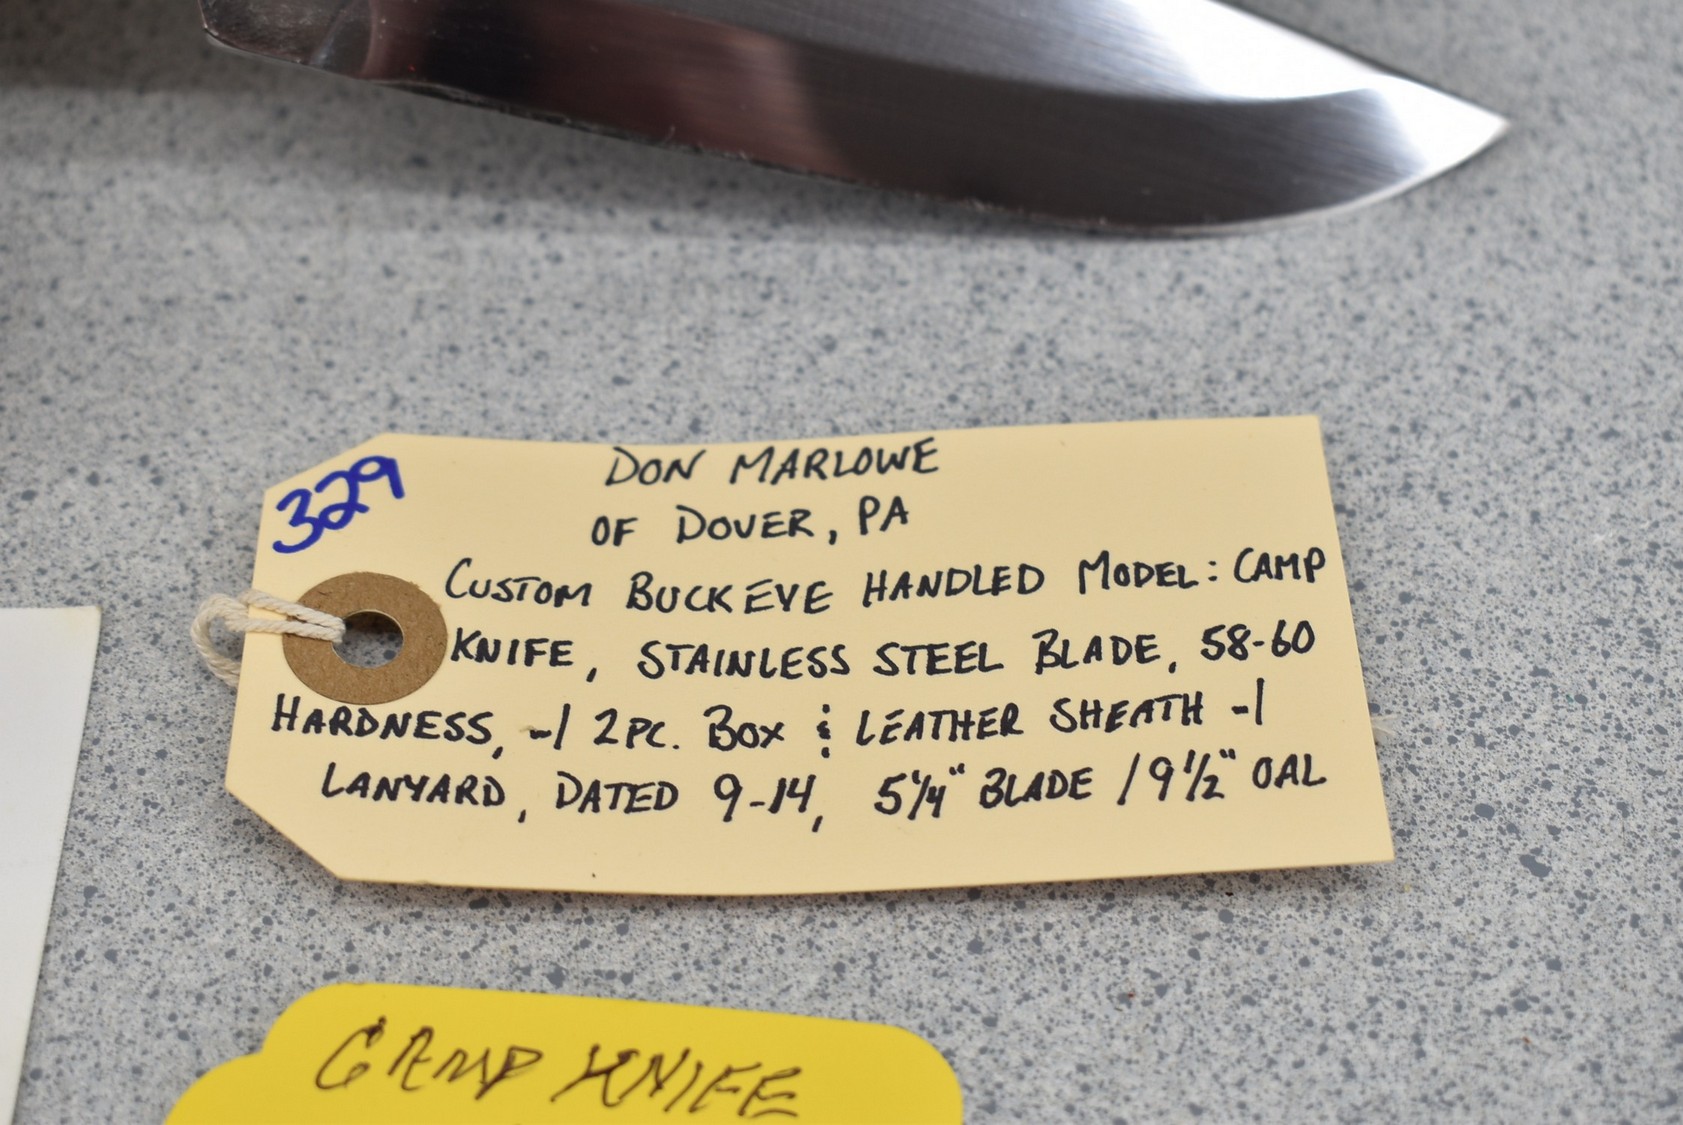 329
DON MARLOWE
OF DOVER, PA
CUSTOM BUCKEYE HANDLED MODEL: CAMP
KNIFE, STAINLESS STEEL BLADE, 58-60
HARDNESS, -1 2PC. BOX & LEATHER SHEATH -1
LANYARD, DATED 9-14, 5 1/4" BLADE / 9 1/2" OAL
CAMP KNIFE